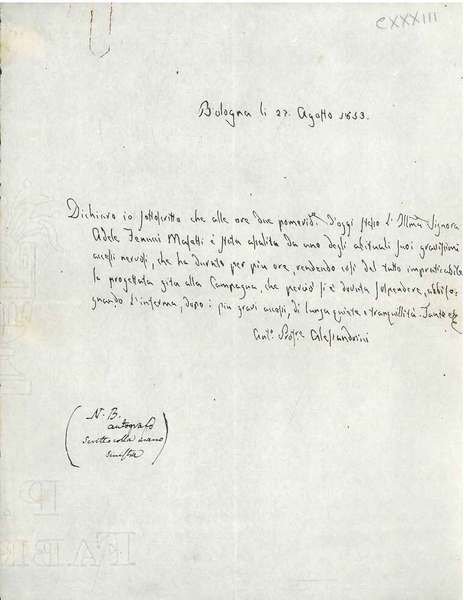 CXXXIII
Bologna li 27. Agosto 1853.
Dichiaro io sottoscritto che alle ore due pomerid. d'oggi stesso l'Illma Signora
Adele Masetti è stata assalita da uno degli abituali suoi gravissimi
accessi nervosi, che ha durato per più ore, rendendo così del tutto impraticabile
la progettata gita alla Campagna, che perciò si è dovuta sospendere, abbiso-
gnando l'inferma, dopo i più gravi accessi, di lunga quiete e tranquillità.
Ant.o Alessandrini
(N. B.
autografo
scritto colla mano
sinistra)
FABR